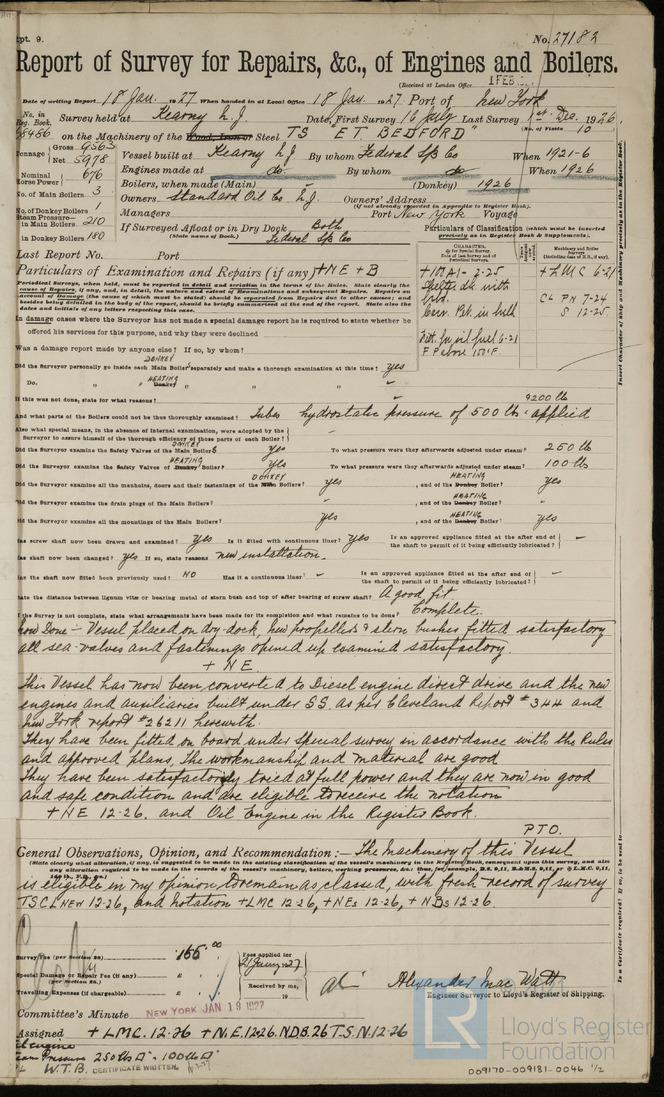 Rpt. 9.
No. 27182
Report of Survey for Repairs, &c., of Engines and Boilers.
(Received at London Office 1 FEB
Date of writing Report 18 Jan. 1927 When handed in at Local Office 18 Jan. 1927. Port of New York
No. in Reg. Book. 98486 Survey held at Kearny N.J. Date, First Survey 16 July Last Survey 1st Dec. 1926.
(No. of Visits 10
on the Machinery of the Wood, Iron or Steel TS "E.T. BEDFORD"
Tonnage Gross 9563 Net 5978
Vessel built at Kearny N.J. By whom Federal S/B Co When 1921-6
Nominal Horse Power 676
Engines made at do By whom do When 1926
No. of Main Boilers 3
Boilers, when made (Main) - (Donkey) 1926
No. of Donkey Boilers 1
Owners Standard Oil Co. N.J. Owners' Address
(if not already reported in Appendix to Register Book.)
Steam Pressure in Main Boilers 210
Managers Port New York Voyage
in Donkey Boilers 180
If Surveyed Afloat or in Dry Dock Both
(State name of Dock.) Federal S/B Co
Particulars of Classification (which must be inserted precisely as in Register Book & Supplements).
Last Report No. Port
Particulars of Examination and Repairs (if any) + N E + B
+100A1- 2-25
Shelter dk with
Carr. Pet. in bulk
Fitt. for oil fuel 6-21
F.P. above 150°F.
+ L M C 6-21
CL PN 7-24
S 12-25
Periodical Surveys, when held, must be reported in detail and seriatim in the terms of the Rules. State clearly the cause of Repairs, if any, and, in detail, the nature and extent of Examinations and subsequent Repairs. Repairs on account of Damage (the cause of which must be stated) should be separated from Repairs due to other causes; and besides being detailed in the body of the report, should be briefly summarised at the end of the report. State also the dates and initials of any letters respecting this case.
In damage cases where the Surveyor has not made a special damage report he is required to state whether he
offered his services for this purpose, and why they were declined
Was a damage report made by anyone else? If so, by whom?
Did the Surveyor personally go inside each Main DONKEY Boiler separately and make a thorough examination at this time? yes
Do. " " Donkey HEATING " " " "
If this was not done, state for what reasons? " 9200 lb
And what parts of the Boilers could not be thoroughly examined? Tubes hydrostatic pressure of 500 lbs applied
Also what special means, in the absence of internal examination, were adopted by the
Surveyor to assure himself of the thorough efficiency of those parts of each Boiler? -
Did the Surveyor examine the Safety Valves of the Main DONKEY Boilers? yes To what pressure were they afterwards adjusted under steam? 250 lb
Did the Surveyor examine the Safety Valves of Donkey HEATING Boiler? yes To what pressure were they afterwards adjusted under steam? 100 lb
Did the Surveyor examine all the manholes, doors and their fastenings of the Main DONKEY Boilers? yes , and of the Donkey HEATING Boiler? yes
Did the Surveyor examine the drain plugs of the Main Boilers? - , and of the Donkey HEATING Boiler? -
Did the Surveyor examine all the mountings of the Main Boilers? yes , and of the Donkey HEATING Boiler? yes
Has screw shaft now been drawn and examined? yes Is it fitted with continuous liner? yes Is an approved appliance fitted at the after end of the shaft to permit of it being efficiently lubricated? -
Has shaft now been changed? yes If so, state reasons new installation.
Has the shaft now fitted been previously used? NO Has it a continuous liner? - Is an approved appliance fitted at the after end of the shaft to permit of it being efficiently lubricated? -
State the distance between lignum vitæ or bearing metal of stern bush and top of after bearing of screw shaft? A good fit
If the Survey is not complete, state what arrangements have been made for its completion and what remains to be done? Complete.
Now Done:- Vessel placed on dry-dock, New propellers & stern bushes fitted satisfactory
all sea-valves and fastenings opened up examined satisfactory.
+ N E.
This Vessel has now been converted to Diesel engine direct drive and the new
engines and auxiliaries built under S.S. as per Cleveland Report # 344 and
New York report # 26211 herewith.
They have been fitted on board under special survey in accordance with the Rules
and approved plans, the workmanship and material are good
They have been satisfactorily tried at full power and they are now in good
and safe condition and are eligible to receive the notation
+ NE 12-26. and Oil Engine in the Register Book.
PTO.
General Observations, Opinion, and Recommendation:- The machinery of this Vessel
(State clearly what alteration, if any, is proposed to be made in the existing classification of the vessel's machinery in the Register Book, consequent upon this survey, and also
any alteration required to be made in the records of the vessel's machinery, boilers, working pressures, &c.
is eligible in my opinion to remain as classed, with fresh record of survey
TSCL NEW 12-26, and notation + LMC 12-26, + NEs 12-26, + NBs 12-26.
Survey Fee (per Section 29) 155.00
Fees applied for
21 January 1927
Special Damage or Repair Fee (if any) £
(per Section 29.)
Received by me,
19
Travelling Expenses (if chargeable) £
Alexander Mac Watt
Engineer Surveyor to Lloyd's Register of Shipping.
Committee's Minute NEW YORK JAN 19 1927
Assigned + LMC. 12-26 + N.E. 12-26. N.D.B. 26 T.S.N. 12-26
Oil engine
Steam Pressure 250 lbs □" - 100 lb □"
W.T.B. CERTIFICATE WRITTEN
Insert Character of Ship and Machinery precisely as in the Register Book.
Is a Certificate required? If so, to be sent to
LR
Lloyd's Register
Foundation
009170-009181-0046 1/2